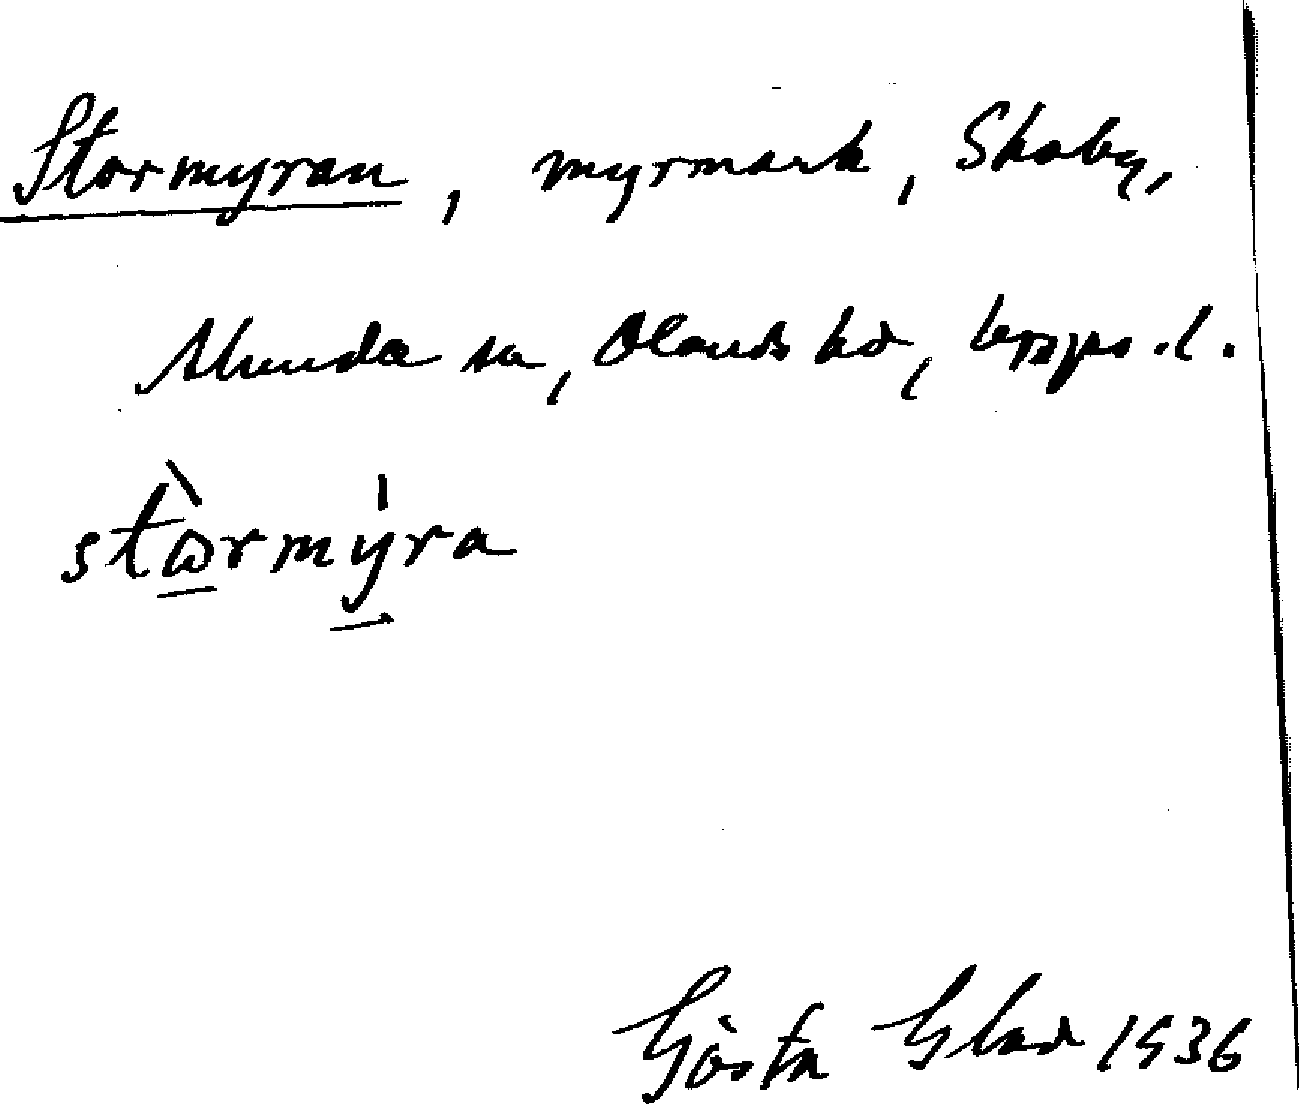 Stormyran, myrmark, Skoby,
Alunda sn, Olands hd, Upps. l.
stòrmy̍ra
Gösta Glad 1936